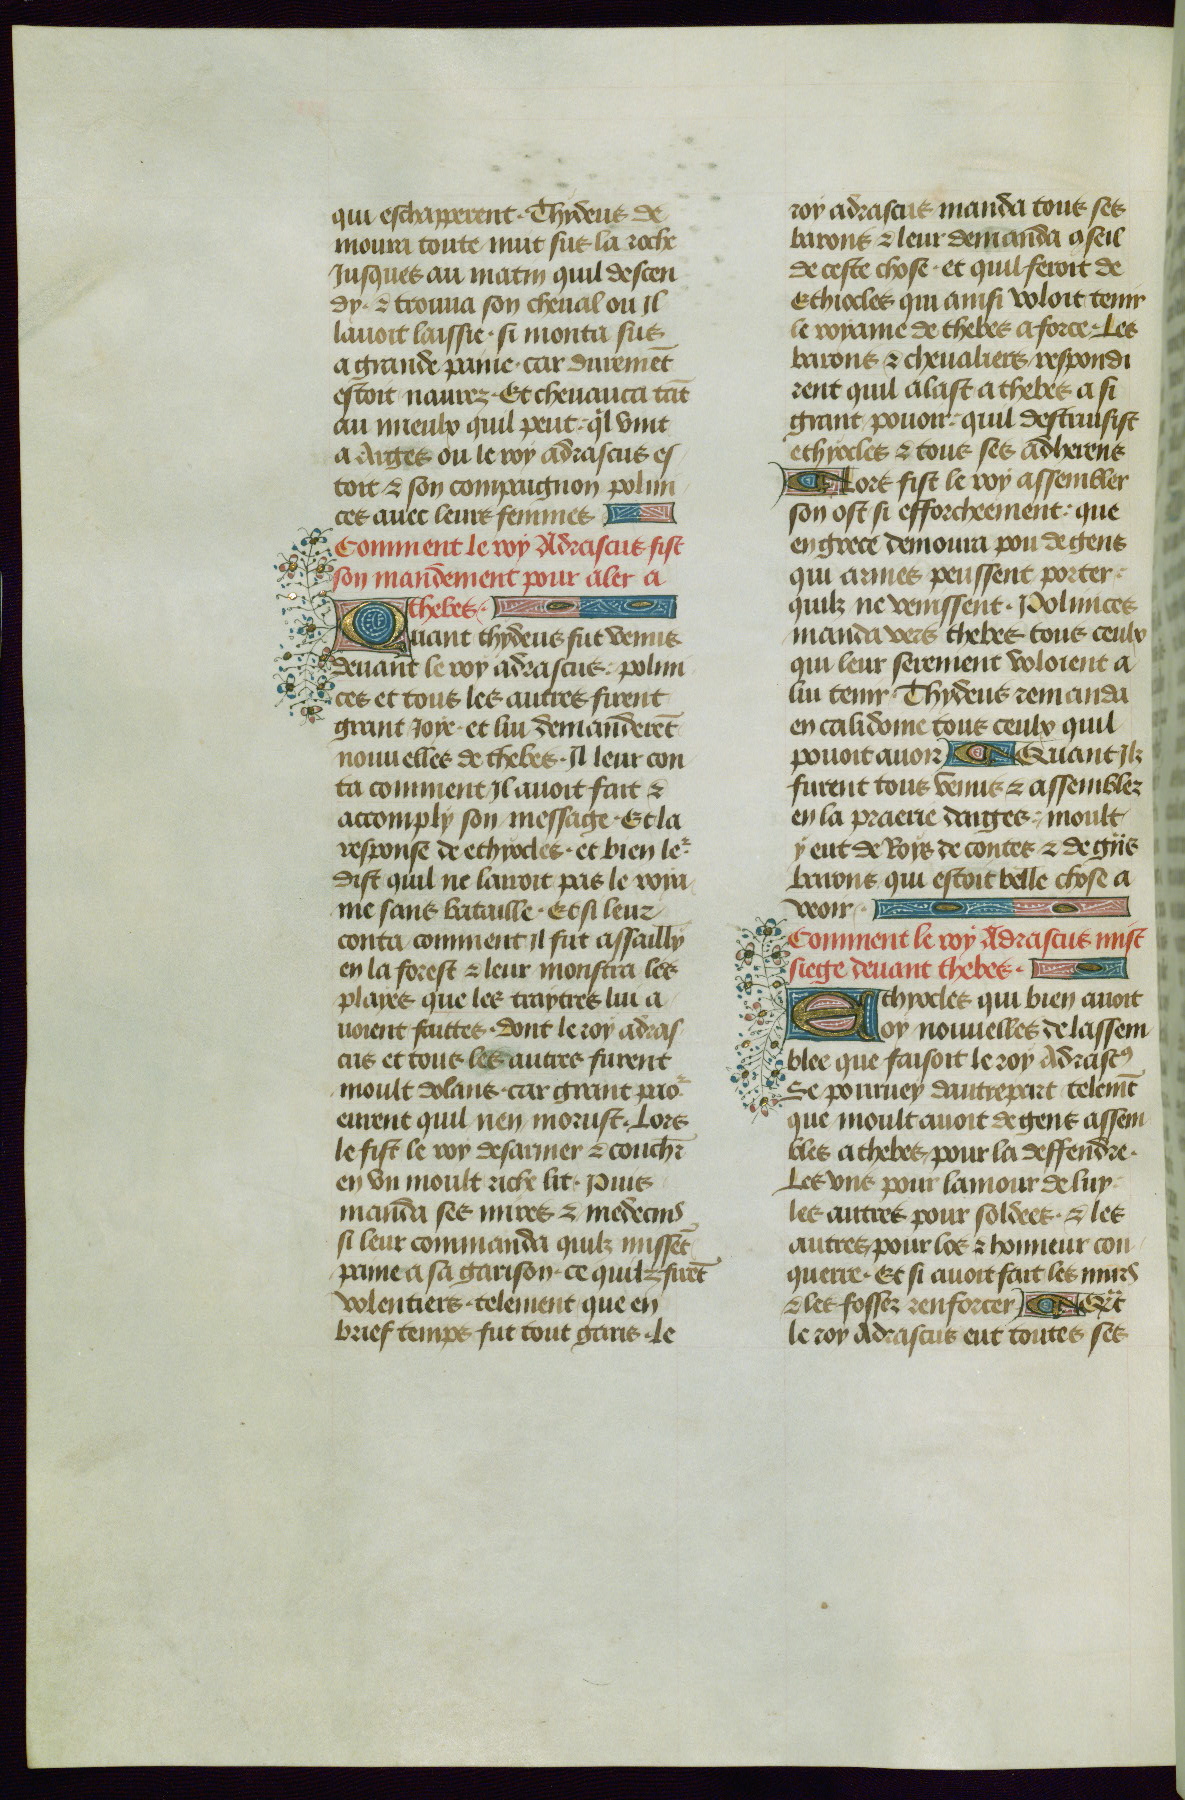 qui eschapperent · Thydeus de
moura toute nuit sus la roche
Jusques au matin quil descen
dy · ⁊ trouua son cheual ou il
lauoit laissie · si monta sus
a grande paine · car duremēt
estoit naurez · Et cheuauca tāt
au mieulx quil peut · ql vint
a Arges ou le roy adrascus es
toit ⁊ son compaignon polini
ces auec leurs femmes
Comment le roy Adrascus fist
son mandement pour aler a
thebes ·
Quant thydeus fut venus
deuant le roy adrascus · polini
ces et tous les autres firent
grant Joye · et lui demanderēt
nouuelles de thebes · Il leur con
ta comment Il auoit fait ⁊
accomply son message · Et la
response de ethyocles · et bien le
dist quil ne lairoit pas le roya
me sans bataille · Et si leur
conta comment il fut assailly
en la forest ⁊ leur monstra les
plaies que les traytres lui a
uoient faittes · dont le roy adras
cus et tous les autres furent
moult dolans · car grant pao
eurent quil nen morust · Lors
le fist le roy desarmer ⁊ couchr
en vn moult riche lit · Puis
manda ses mires ⁊ medecins
si leur commanda quilz missēt
paine a sa garison · ce quilz firēt
volentiers · telement que en
brief temps fut tout garis · le
roy adrascus manda tous ses
barons ⁊ leur demanda 9seil
de ceste chose · et quil feroit de
Ethiocles qui ainsi voloit tenir
le royame de thebes a force · Les
barons ⁊ cheualiers respondi
rent quil alast a thebes a si
grant pouoir · quil destruisist
ethyocles ⁊ tous ses adherens
Lors fist le roy assembler
son ost si efforcheement · que
en grece demoura pou de gens
qui armes peussent porter ·
quilz ne venissent · Polinices
manda vers thebes tous ceulx
qui leur serement voloient a
lui tenir · Thydeus remanda
en calidoine tous ceulx quil
pouoit auoir Quant Ilz
furent tous venus ⁊ assemblez
en la praerie darges · moult
y eut de Roys de contes ⁊ de gñs
barons qui estoit belle chose a
veoir ·
Comment le roy Adrascus mist
siege deuant thebes ·
Ethyocles qui bien auoit
oy nouuelles de lassem
blee que faisoit le roy Adrast9
Se pouruey dautrepart telemt
que moult auoit de gens assem
bles a thebes pour la deffendre ·
Les vns pour lamour de luy ·
les autres pour soldees · ⁊ les
autres pour los ⁊ honneur con
querre · Et si auoit fait les murs
⁊ les fossez renforcer Qñt
le roy Adrascus eut toutes ses